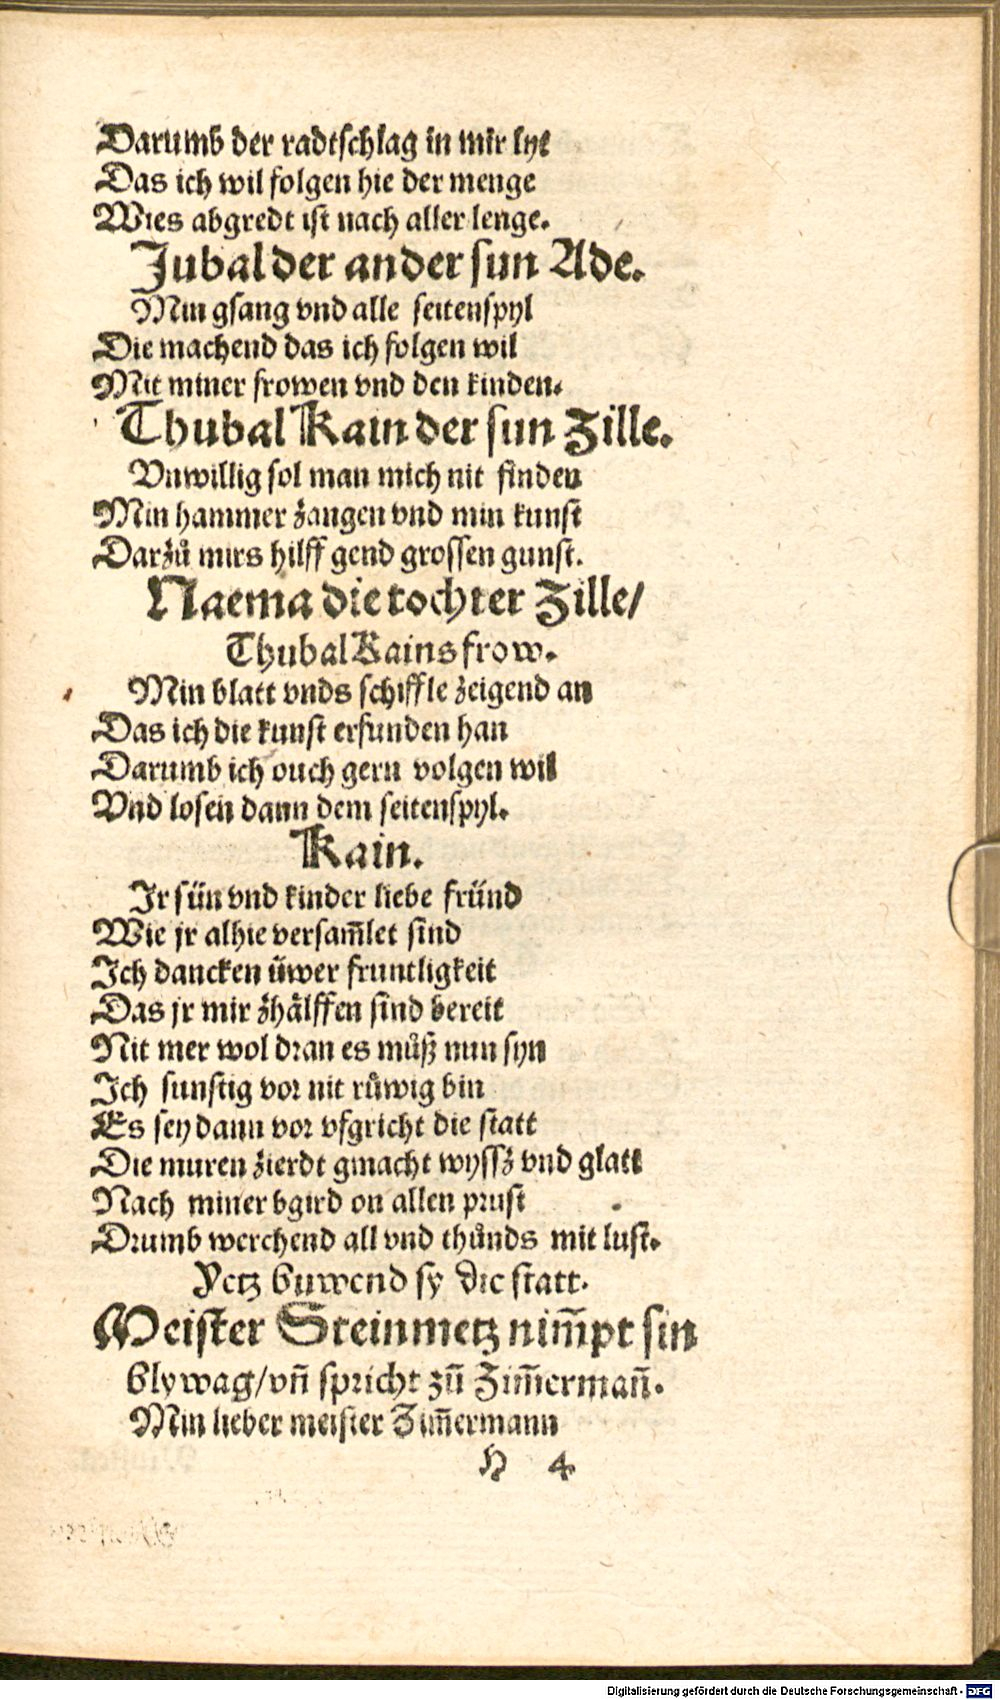 Darumb der radtschlag in mir lyt
Das ich wil folgen hie der menge
Wies abgredt ist nach aller lenge.
Jubal der ander sun Ade.
Min gsang vnd alle seitenspyl
Die machend das ich folgen wil
Mit miner frowen vnd den kinden.
Thubal Kain der sun Zille.
Vnwillig sol man mich nit finden
Min hammer zangen vnd min kunst
Darzuͦ mirs hilff gend grossen gunst.
Naema die tochter Zille/
Thubal Kains frow.
Min blatt vnds schiffle zeigend an
Das ich die kunst erfunden han
Darumb ich ouch gern volgen wil
Vnd losen dann dem seitenspyl.
Kain.
Ir sün vnd kinder liebe fründ
Wie jr alhie versam̃let sind
Ich dancken üwer fruntligkeit
Das jr mir zhälffen sind bereit
Nit mer wol dran es muͦß nun syn
Ich sunstig vor nit ruͤwig bin
Es sey dann vor vfgricht die statt
Die muren zierdt gmacht wyssz vnd glatt
Nach miner bgird on allen prust
Drumb werchend all vnd thuͦnds mit lust.
Yetz buwend sy die statt.
Meister Steinmetz nim̃pt sin
blywag/vñ spricht zū Zim̃ermañ.
Min lieber meister Zim̃ermann
H 4
Digitalisierung gefördert durch die Deutsche Forschungsgemeinschaft - DFG